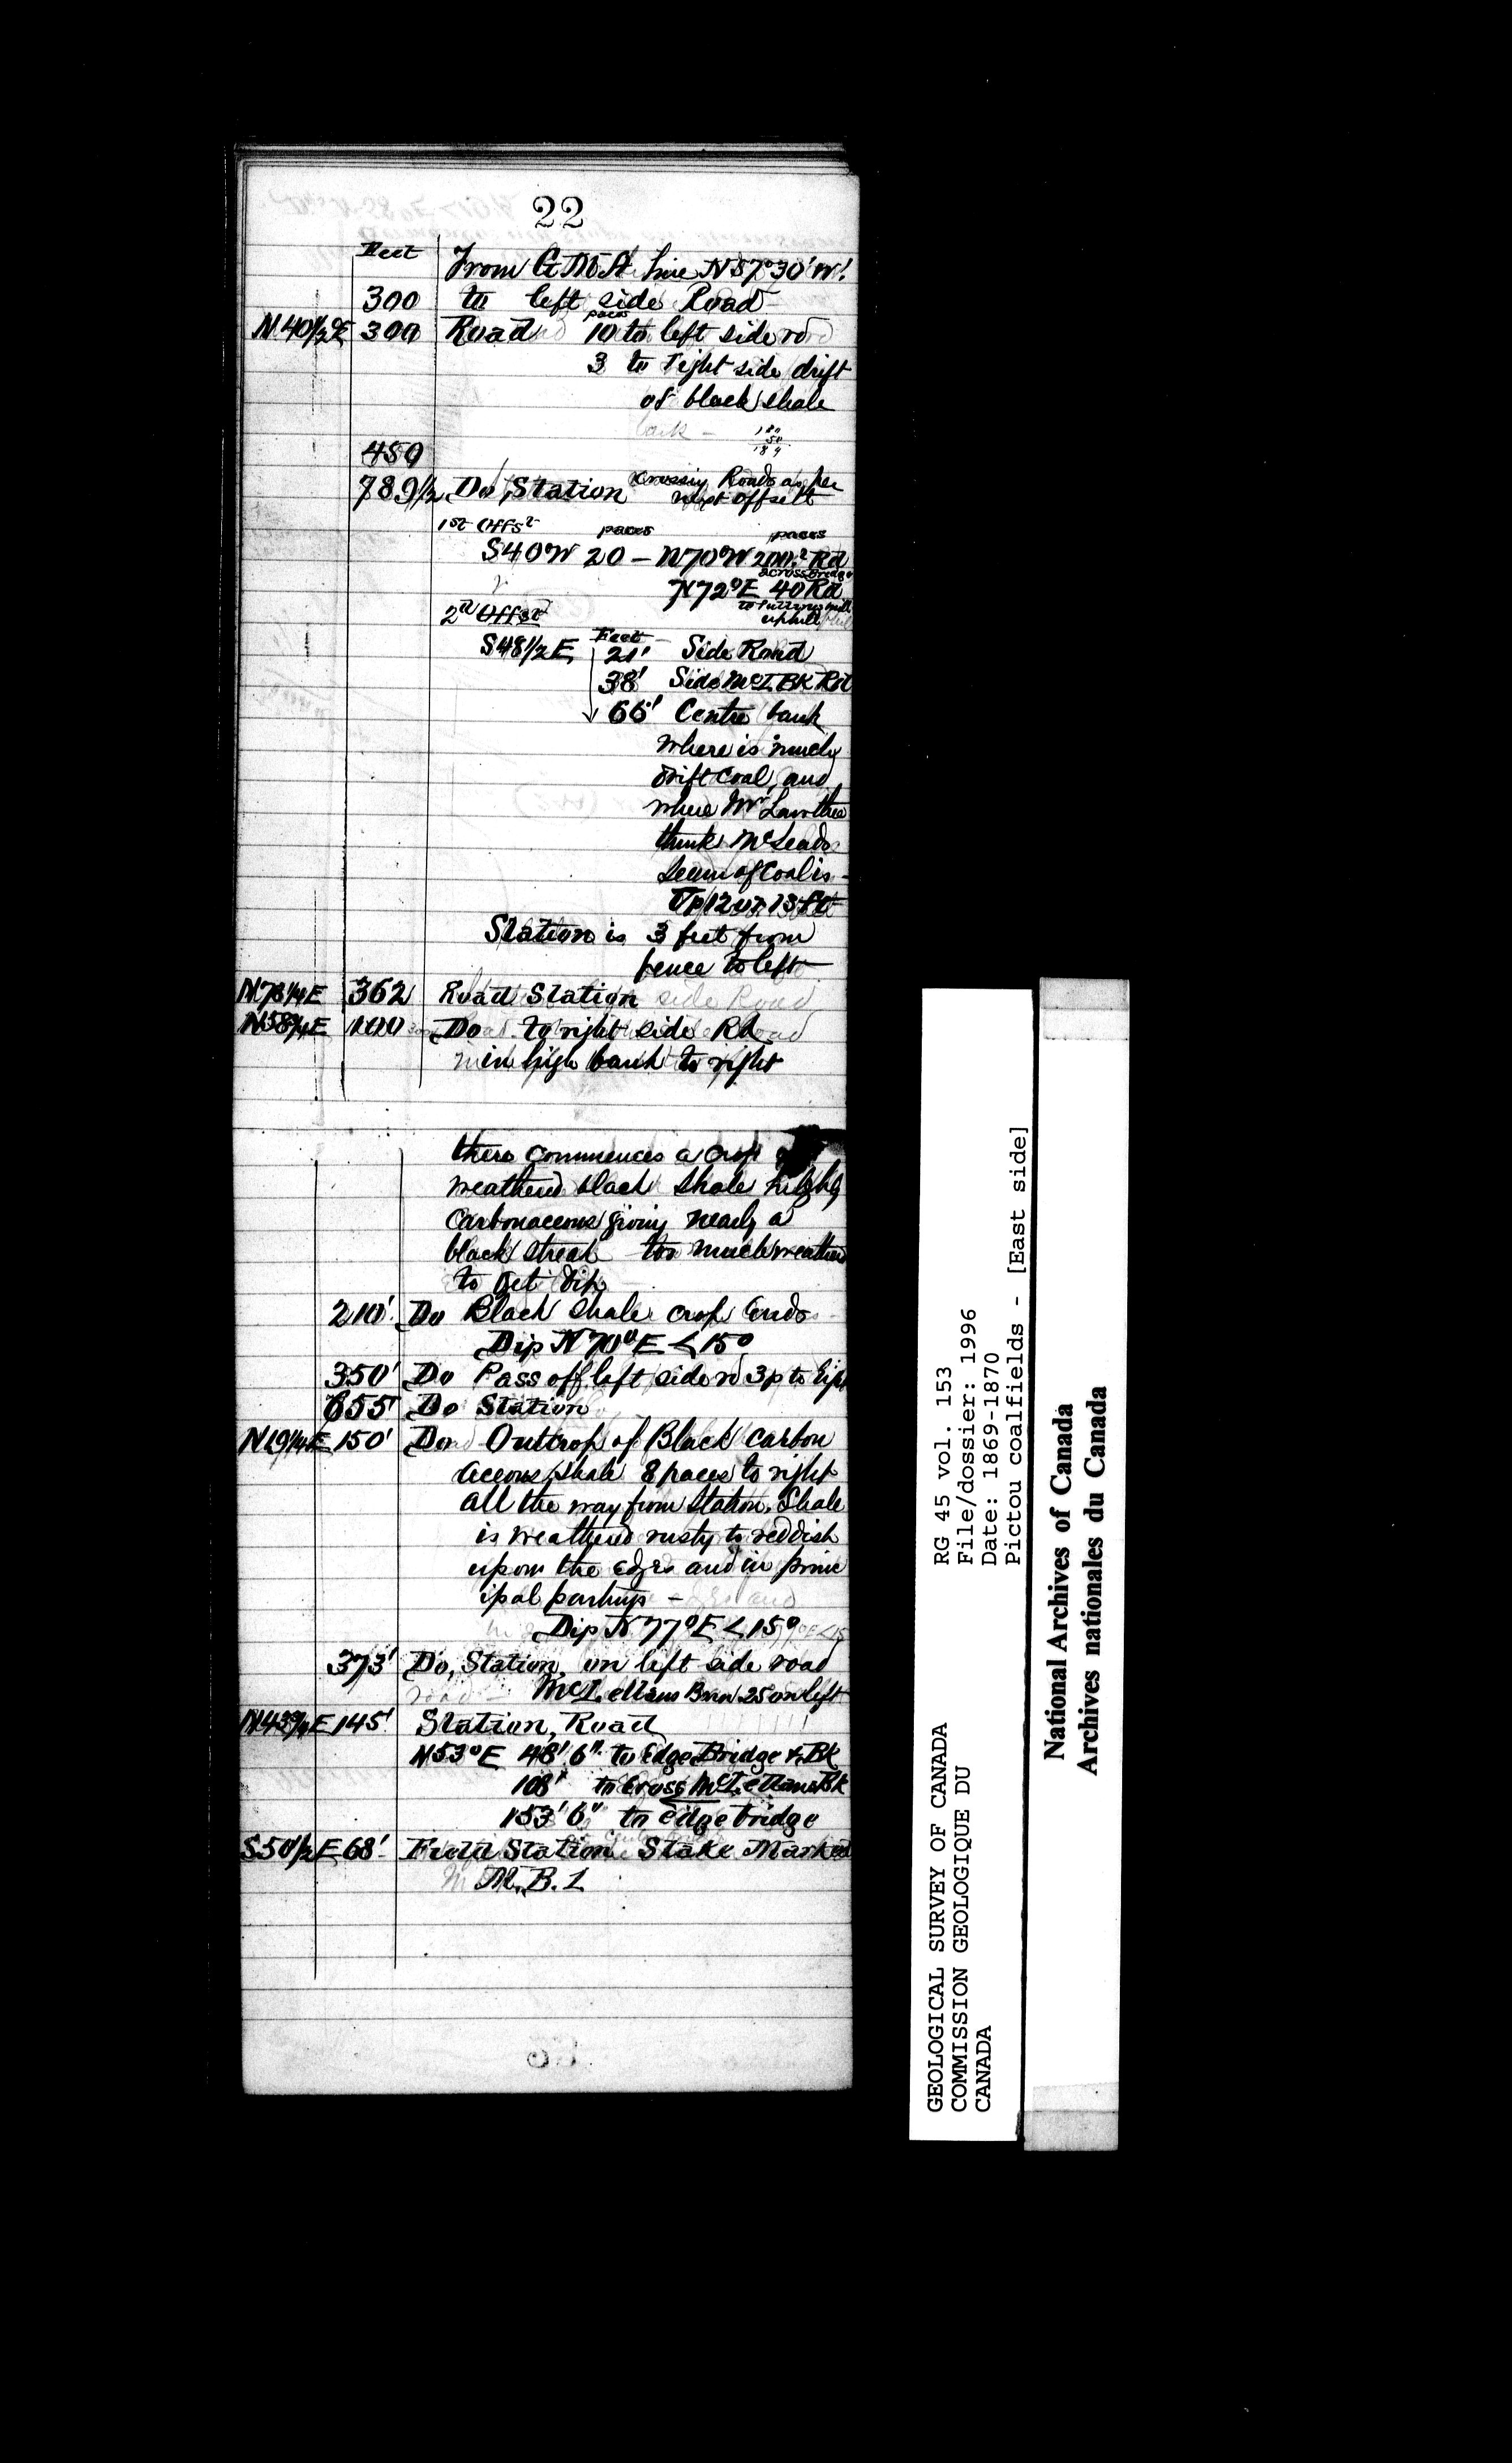 22
Feet From G.M.A. line N 87°30' W.
300 to left side Road
N. 40½°E 300 Road 10 paces to left side rd
3 to right side drift
of black shale
450
789½ Do, Station crossing Roads as per
next offsett
1st Offst paces paces
S40°W 20 – N70°W 200 Rd
across Bridge
N72°E 40 Rd
uphill
2d Offst
S48½E Feet 21' Side Road
38' Side McL. BK Rd
66' Centre bank
where is much
drift coal, and
where Mr Lowther
think McLeads
seam of Coal is –
Up 12 or 13 ft
Station is 3 feet from
fence to left
N78¼E 362 Road Station
N58¼E 100 Do to right side Rd
in high bank to right
there commences a crop of
weathered black shale highly
Carbonaceous giving nearly a
black streak too much weathered
to get dip
210' Do Black shale crop ends
Dip N 70° E < 15°
350' Do Pass off left side rd 3p to right
655' Do Station
N19¼E 150' Do Outcrop of Black carbon
aceous shale 8 paces to right
all the way from Station. Shale
is weathered rusty to reddish
upon the edges and in princ
ipal partings –
Dip N 77° E < 15°
373' Do, Station, on left side road
McLellans Brn 25 on left
N43¾E 145' Station, Road
N53°E 48' 6" to Edge Bridge & Bk
108' to cross McLellans Bk
153' 6" to edge bridge
S50½E 68' Field Station Stake Marked
M.B.1
GEOLOGICAL SURVEY OF CANADA
COMMISSION GEOLOGIQUE DU
CANADA
RG 45 vol. 153
File/dossier: 1996
Date: 1869-1870
Pictou coalfields - [East side]
National Archives of Canada
Archives nationales du Canada